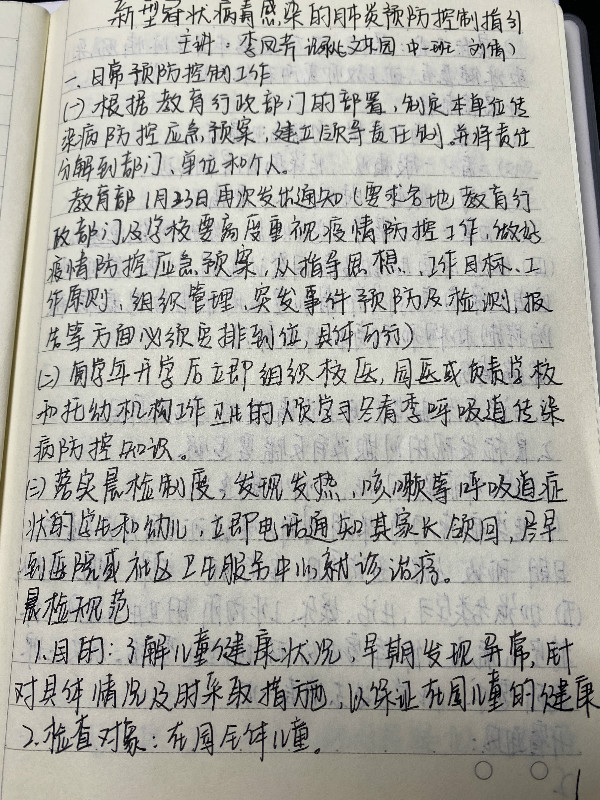 新型冠状病毒感染的肺炎预防控制指引
主讲：李凤芳 文东园 中一班 刘倩）
一、日常预防控制工作
(一)根据教育行政部门的部署，制定本单位传
染病防控应急预案，建立领导责任制，并将责任
分解到部门、单位和个人。
教育部1月23日再次发出通知（要求各地教育行
政部门及学校要高度重视疫情防控工作，做好
疫情防控应急预案，从指导思想、工作目标、工
作原则、组织管理、突发事件预防及检测，报
告等方面必须安排到位，具体可行）
(二)每学年开学后立即组织校医，园医或负责学校
和托幼机构工作卫生的人员学习冬春季呼吸道传染
病防控知识。
(三)落实晨检制度，发现发热、咳嗽等呼吸道症
状的学生和幼儿，立即电话通知其家长领回，尽早
到医院或社区卫生服务中心就诊治疗。
晨检规范
1.目的：了解儿童健康状况，早期发现异常，针
对具体情况及时采取措施，以保证在园儿童的健康
2.检查对象：在园全体儿童。
1